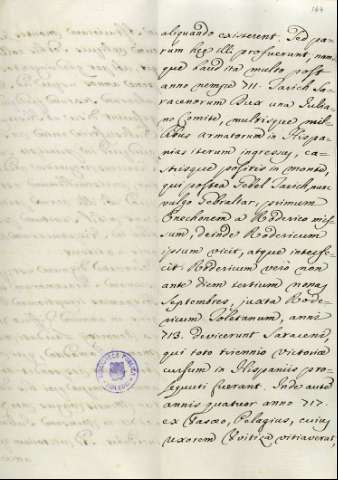 164
aliquando exiserent. Sed pa-
rum hęc illi profuerunt, nam-
que haud ita multo post
anno nempe 711. Tarich Sa-
racenorum Dux una Iulia-
no Comite, multisque mil-
libus armatorum in Hispa-
nias iterum ingressus, ca-
strisque positis in monte,
qui postea Gebel Tarich, nunc
vulgo Gibraltar, primum
Enechonem a Roderico mis-
sum, deinde Rodericum
ipsum vicit, atque interfe-
cit. Rodericum vero non
ante diem tertium nonas
Septembres, juxta Rode-
ricum Toletanum, anni
713. devicerunt Saraceni,
qui toto triennio victoriæ
cursum in Hispaniis pro-
sequuti fuerant. Inde autem
annis quatuor anno 717.
ex Pelagius, cuius
uxorem Vvitiza vitiaverat,
BIBLIOTECA PUBLICA
TOLEDO